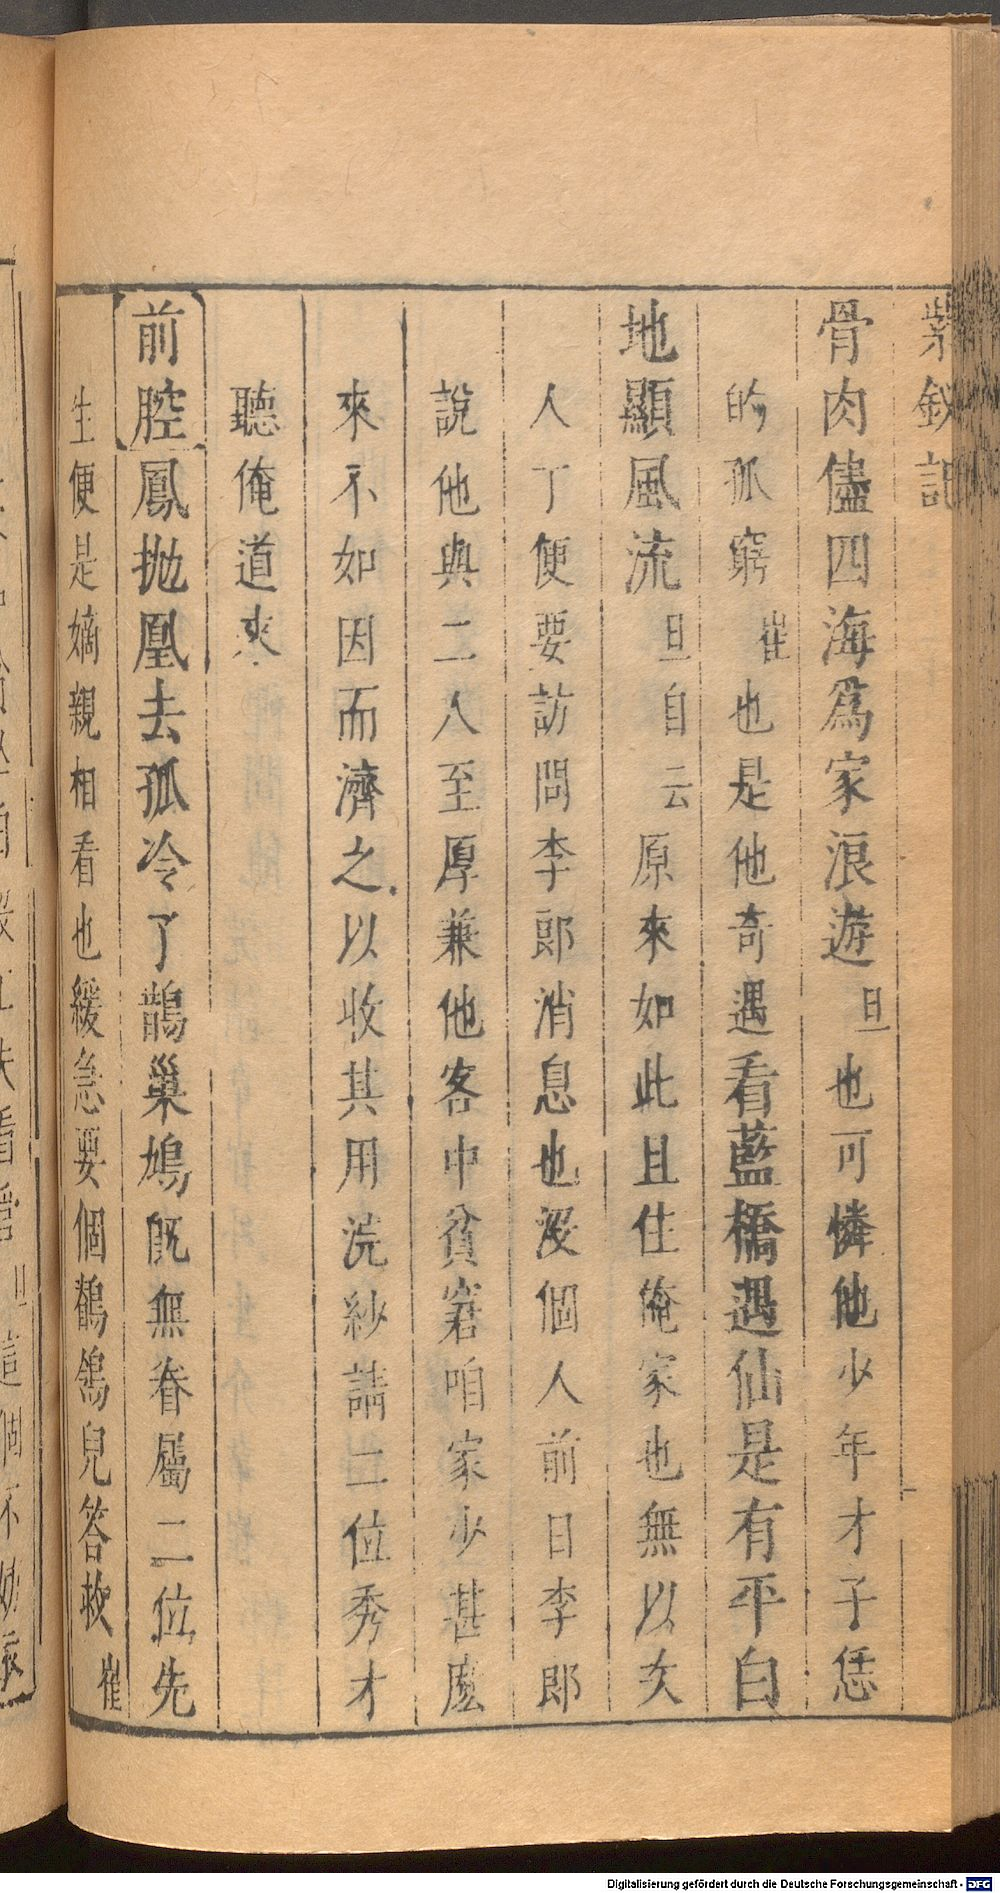 紫釵記
骨肉儘四海爲家浪遊旦也可憐他少年才子恁
的孤窮崔也是他奇遇看藍橋遇仙是有平白
地顯風流旦自云原來如此且住俺家也無以次
人丁便要訪問李郎消息也沒個人前日李郎
說他與二人至厚兼他客中貧窘咱家少甚麽
來不如因而濟之以收其用浣紗請二位秀才
聽俺道來
前腔鳳拋凰去孤冷了鵲巢鳩旣無眷屬二位先
生便是嫡親相看也緩急要個鶺鴒兒答救崔
Digitalisierung gefördert durch die Deutsche Forschungsgemeinschaft - DFG